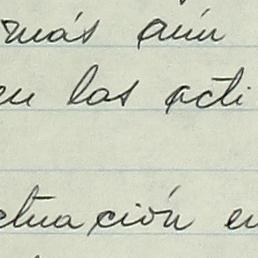 más aún
en las acti
ctuación en